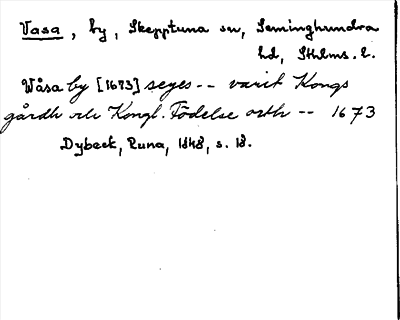 Vasa, by, Skepptuna sn, Seminghundra
hd, Sthlms. l.
Wåsa by [1673] seyes -- varit Kongs
gårdh elr Kongl. Födelse orth -- 1673
Dybeck, Runa, 1848, s. 18.